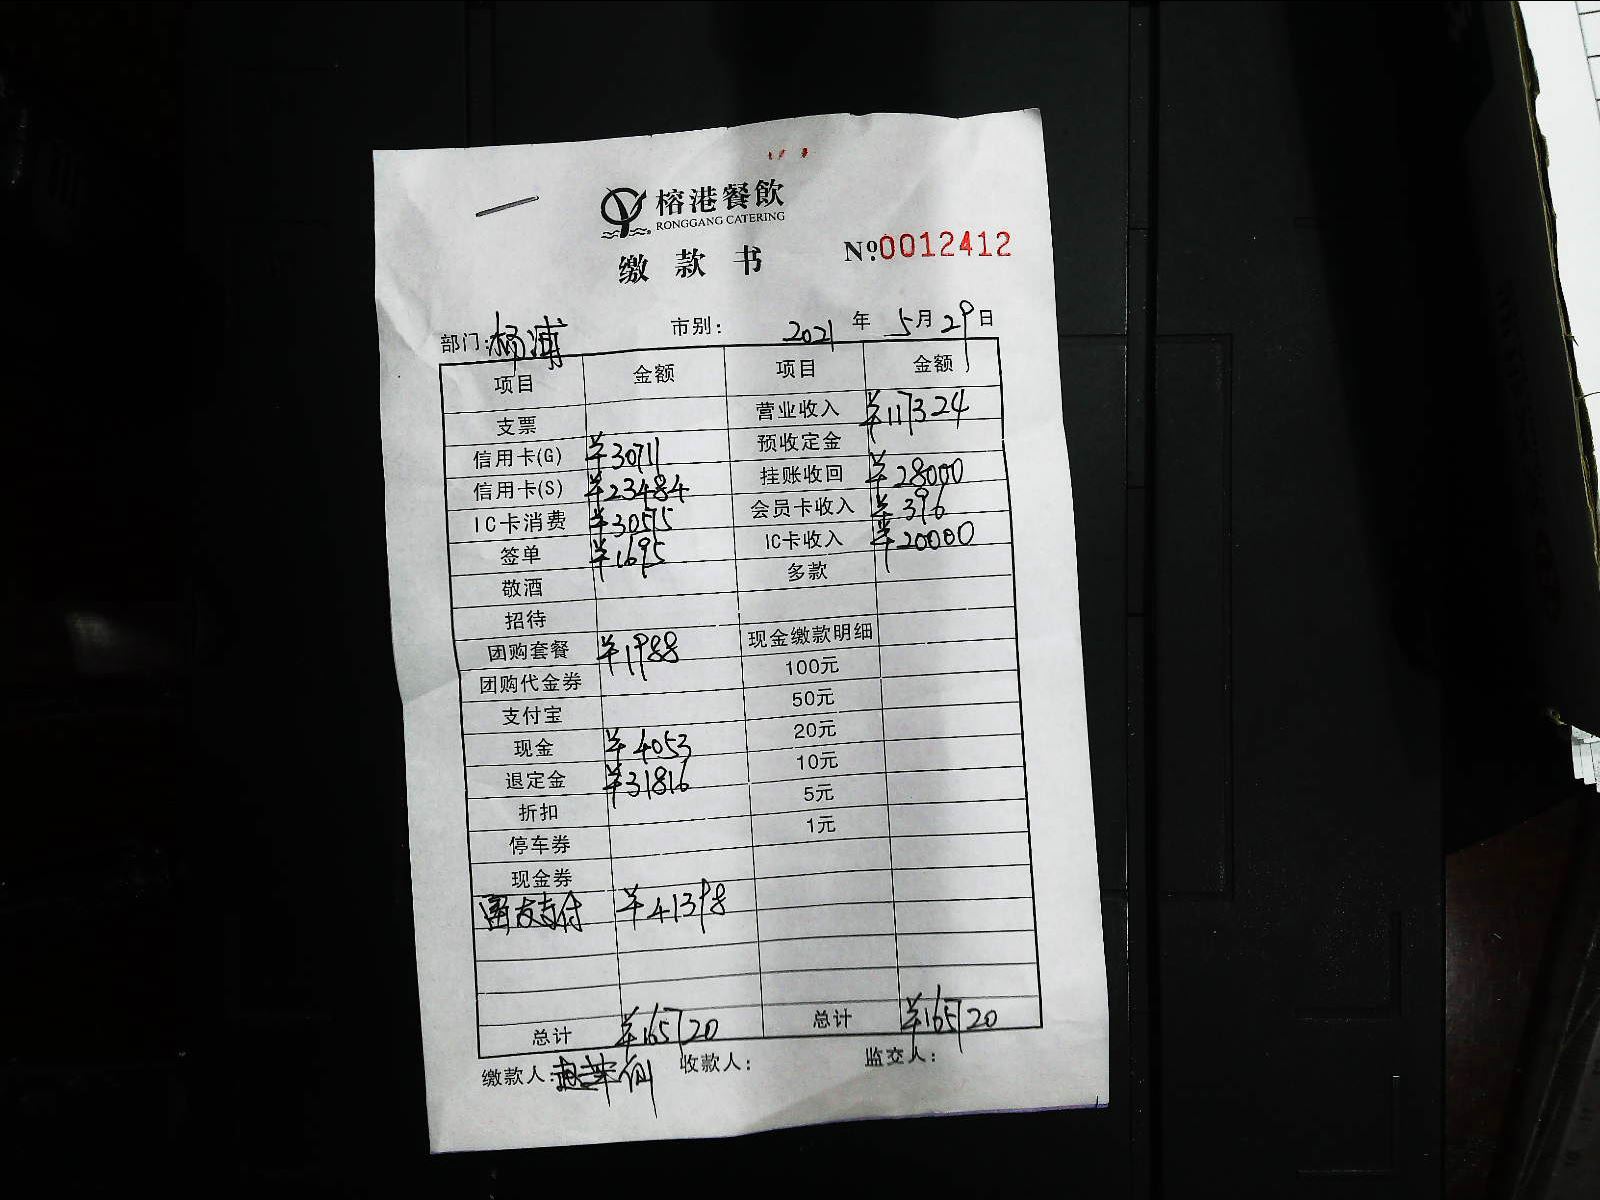 榕港餐飲
RONGGANG CATERING
缴款书 №0012412
部门:杨浦 市别: 2021年5月29日
项目 金额 项目 金额
支票 营业收入 ¥117324
信用卡(G) ¥30711 预收定金
信用卡(S) ¥23484 挂账收回 ¥28000
IC卡消费 ¥30575 会员卡收入 ¥396
签单 ¥1695 IC卡收入 ¥20000
敬酒 多款
招待
团购套餐 ¥1988 现金缴款明细
团购代金券 100元
支付宝 50元
现金 ¥4053 20元
退定金 ¥31816 10元
折扣 5元
停车券 1元
现金券
富友支付 ¥41398
总计 ¥165720 总计 ¥165720
缴款人: 收款人: 监交人: